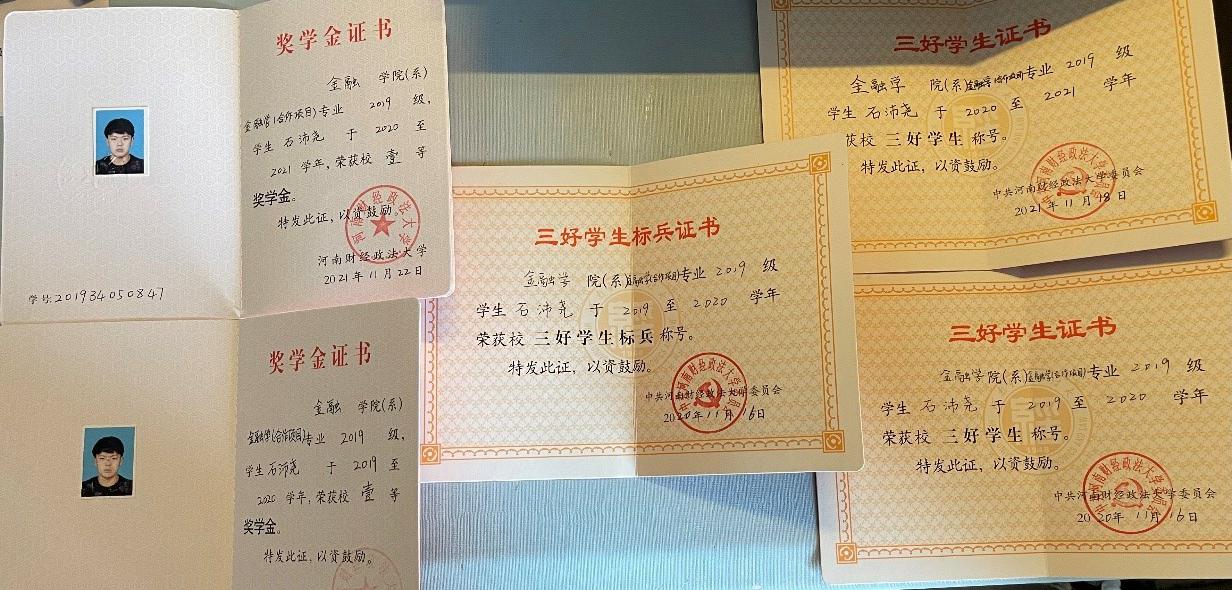 奖学金证书
金融 学院(系)
金融学(合作项目)专业 2019 级,
学生 石沛尧 于 2020 至
2021 学年,荣获校 壹 等
奖学金。
特发此证,以资鼓励。
河南财经政法大学
2021年11月22日
学号:201934050847
奖学金证书
金融 学院(系)
金融学(合作项目)专业 2019 级,
学生 石沛尧 于 2019 至
2020 学年,荣获校 壹 等
奖学金。
特发此证,以资鼓励。
三好学生标兵证书
金融学 院(系)金融学(合作项目)专业 2019 级
学生 石沛尧 于 2019 至 2020 学年
荣获校 三好学生标兵 称号。
特发此证,以资鼓励。
中共河南财经政法大学委员会
2020年11月16日
三好学生证书
金融学 院(系)金融学(合作项目)专业 2019 级
学生 石沛尧 于 2020 至 2021 学年
荣获校 三好学生 称号。
特发此证,以资鼓励。
中共河南财经政法大学委员会
2021年11月18日
三好学生证书
金融学 院(系)金融学(合作项目)专业 2019 级
学生 石沛尧 于 2019 至 2020 学年
荣获校 三好学生 称号。
特发此证,以资鼓励。
中共河南财经政法大学委员会
2020年11月16日